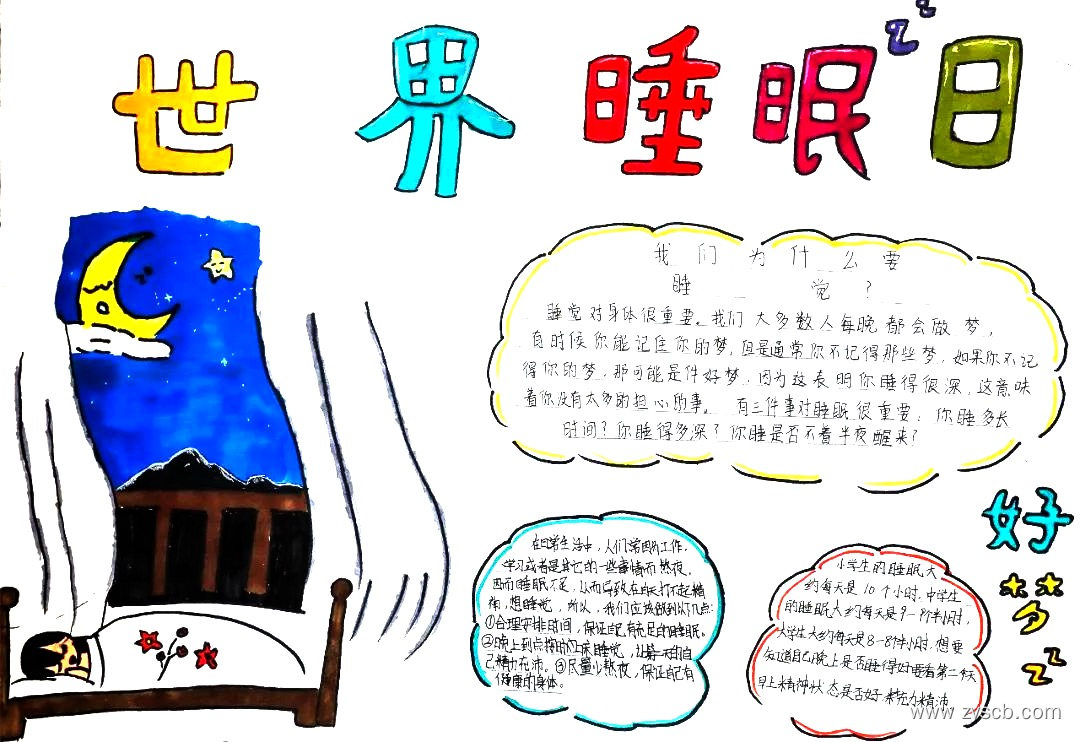 世界睡眠日
我们为什么要
睡觉?
睡觉对身体很重要。我们大多数人每晚都会做梦,
有时候你能记住你的梦,但是通常你不记得那些梦,如果你不记
得你的梦,那可能是件好梦,因为这表明你睡得很深,这意味
着你没有太多的担心的事。有三件事对睡眠很重要:你睡多长
时间?你睡得多深?你睡是否不着半夜醒来?
在日常生活中,人们常因为工作,
学习或者是其它的一些事情而熬夜,
因而睡眠不足,从而导致在白天打不起精
神,想睡觉,所以,我们应该做到以下几点:
①合理安排时间,保证自己有充足的睡眠。
②晚上到点按时上床睡觉,让第二天的自
己精力充沛。③尽量少熬夜,保证自己有
健康的身体。
好
梦
zz
小学生的睡眠大
约每天是10个小时,中学生
的睡眠大约每天是9-9个半小时,
大学生大约每天是8-8个半小时,想要
知道自己晚上是否睡得好要看第二天
早上精神状态是否好 精力精沛
www.zyscb.com